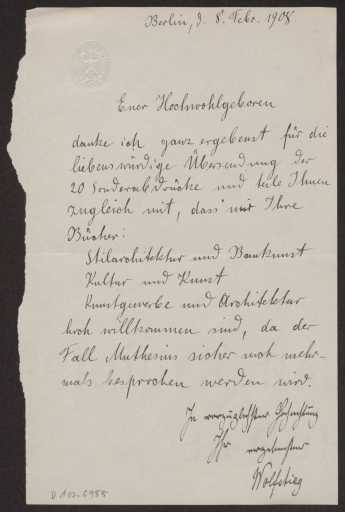 Berlin, d. 8. Febr. 1908
Euer Hochwohlgeboren
danke ich ganz ergebenst für die
liebenswürdige Übersendung der
20 Sonderabdrücke und teile Ihnen
zugleich mit, dass mir Ihre
Bücher:
Stilarchitektur und Baukunst
Kultur und Kunst
Kunstgewerbe und Architektur
hoch willkommen sind, da der
Fall Muthesius sicher noch mehr-
mals besprochen werden wird.
In vorzüglichster Hochachtung
Ihr ergebenster
Wolfstieg
D 102-6988